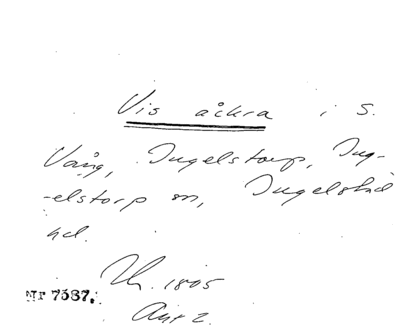 Vis åkra i S.
Vång, Ingelstorp, Ing-
-elstorp sn, Ingelstad
hd.
1805
Nr 7587.
2.